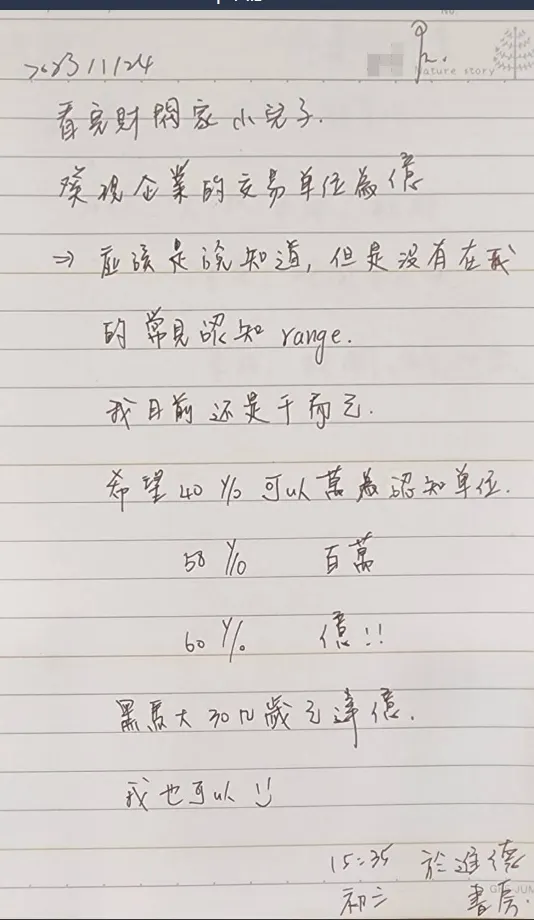 2023/11/24
Nature story
看完財閥家小兒子.
發現企業的交易单位為億
⇒ 應該是說知道, 但是沒有在我
的常見認知 range.
我目前还是千而已.
希望 40 y/o 可以萬為認知单位.
50 y/o 百萬
60 y/o 億!!
黑馬大 30几歲已達億.
我也可以
15:35 於進德
初三 書房.